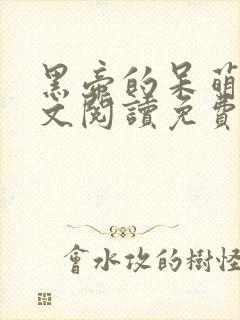 黑帝的呆萌
文閱讀免費
會水攻的樹怪